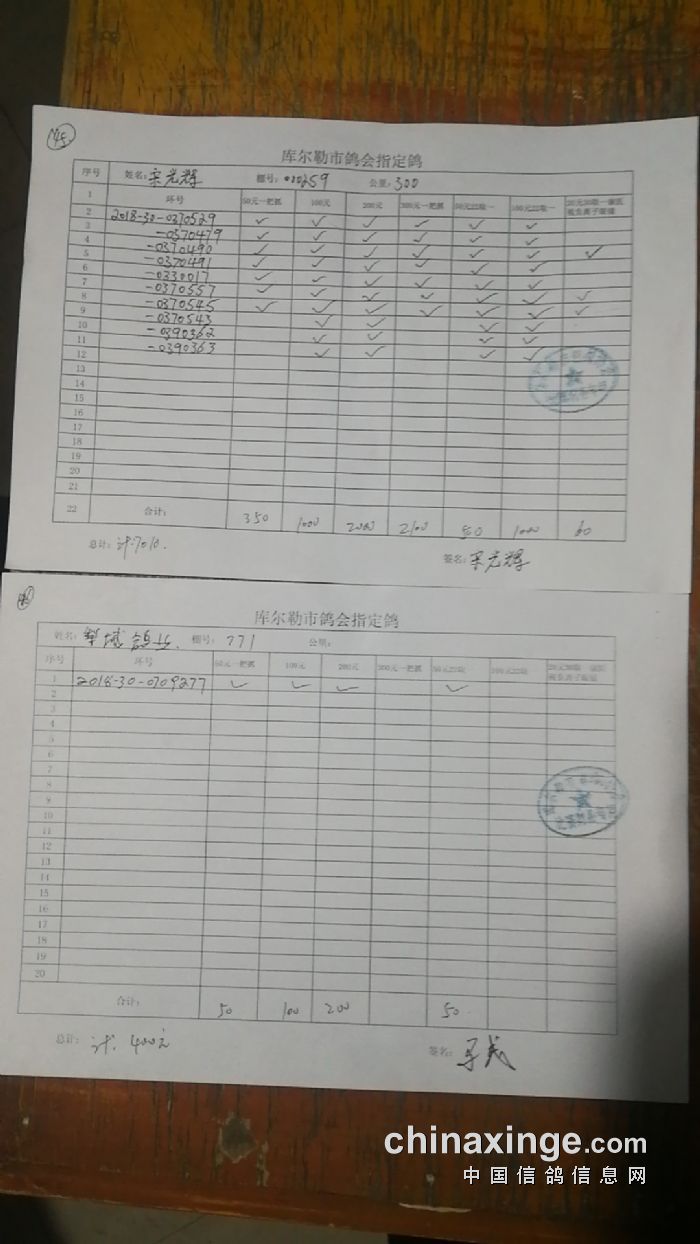 45
库尔勒市鸽会指定鸽
序号 姓名: 宋光辉 棚号: 000259 公里: 300
1 环号 50元一把抓 100元 200元 300元一把抓 50元22取一 100元22取一
2 2018-30-0370529 ✓ ✓ ✓ ✓ ✓ ✓
3 -0370479 ✓ ✓ ✓ ✓ ✓ ✓
4 -0370490 ✓ ✓ ✓ ✓ ✓ ✓ ✓
5 -0370491 ✓ ✓ ✓ ✓ ✓ ✓
6 -0330017 ✓ ✓ ✓ ✓ ✓ ✓
7 -0370557 ✓ ✓ ✓ ✓ ✓ ✓ ✓
8 -0370545 ✓ ✓ ✓ ✓ ✓ ✓ ✓
9 -0370543 ✓ ✓ ✓ ✓
10 -0390362 ✓ ✓ ✓ ✓
11 -0390363 ✓ ✓ ✓ ✓
12
13
14
15
16
17
18
19
20
21
22 合计: 350 1000 2000 2100 1000 60
总计: 计:7010. 签名: 宋光辉
库尔勒市鸽会指定鸽
姓名: 鸽业 棚号: 771 公里:
序号 环号 50元一把抓 100元 200元 300元一把抓 50元22取 100元22取
1 2018-30-0709277 ✓ ✓ ✓ ✓
2
3
4
5
6
7
8
9
10
11
12
13
14
15
16
17
18
19
20
合计: 50 100 200 50
总计: 计. 400元 签名:
chinaxinge.com
中国信鸽信息网